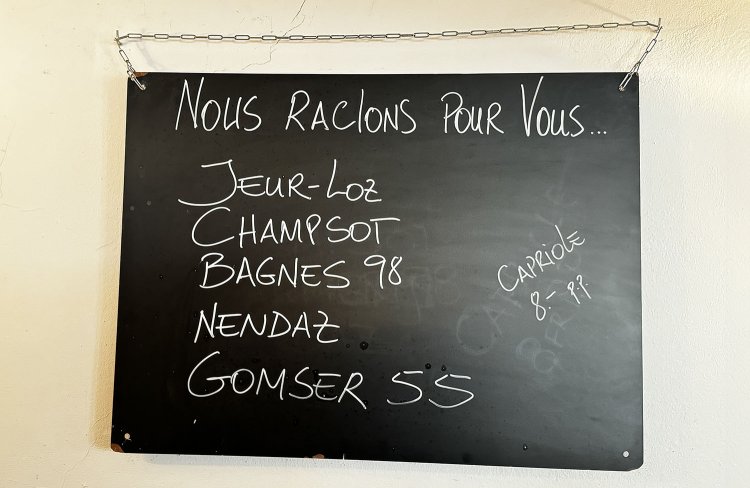 NOUS RACLONS POUR VOUS...
JEUR-LOZ
CHAMPSOT
BAGNES 98
NENDAZ
GOMSER 55
CAPRIOLE
8.- P.P.